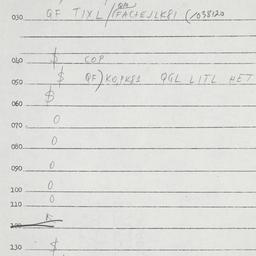 030 QF TIXL/FACHEJLK81 (1038120
040 $ COP
050 $ QF)KO,PK81 QGL LITL HET
060 $
070 0
080 0
090 0
100 0
110 0
100 K
130 $